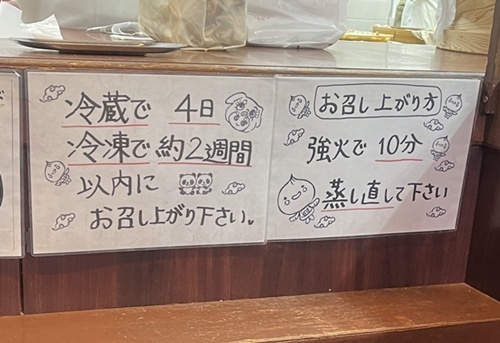 冷蔵で 4日
冷凍で 約2週間
以内に
お召し上がり下さい。
お召し上がり方
強火で 10分
蒸し直して下さい